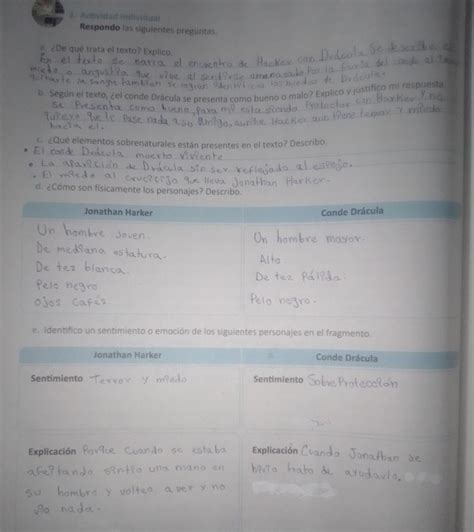 1. Actividad individual
Respondo las siguientes preguntas.
a. ¿De qué trata el texto? Explico.
En el texto se narra el encuentro de Hacker con Drácula Se describe el
miedo o angustia que vive al sentirse amenazado Por la
sangre también se logran
b. Según el texto, ¿el conde Drácula se presenta como bueno o malo? Explico y justifico mi respuesta.
Se Presenta como bueno, Para mi esta siendo Protector con Harker y no
quiere que le Pase nada a so Amigo, aunque Hacker aun tiene temor y miedo
hacia el.
c. ¿Qué elementos sobrenaturales están presentes en el texto? Describo.
• El conde Drácula muerto viviente
• La aparición de Drácula sin ser reflejado al espejo.
• El miedo al crucifijo que lleva Jonathan Harker.
d. ¿Cómo son físicamente los personajes? Describo.
Jonathan Harker Conde Drácula
Un hombre Joven. Un hombre mayor.
De mediana estatura. Alto
De tez blanca. De tez Pálida.
Pelo negro Pelo negro.
ojos Cafés
e. Identifico un sentimiento o emoción de los siguientes personajes en el fragmento.
Jonathan Harker Conde Drácula
Sentimiento Terror y miedo Sentimiento Sobre Protección
Explicación Porque Cuando se estaba Explicación Cuando Jonathan se
afeitando sintio una mano en hirio trato de ayudarlo.
su hombro y volteo a ver y no
vio nada.